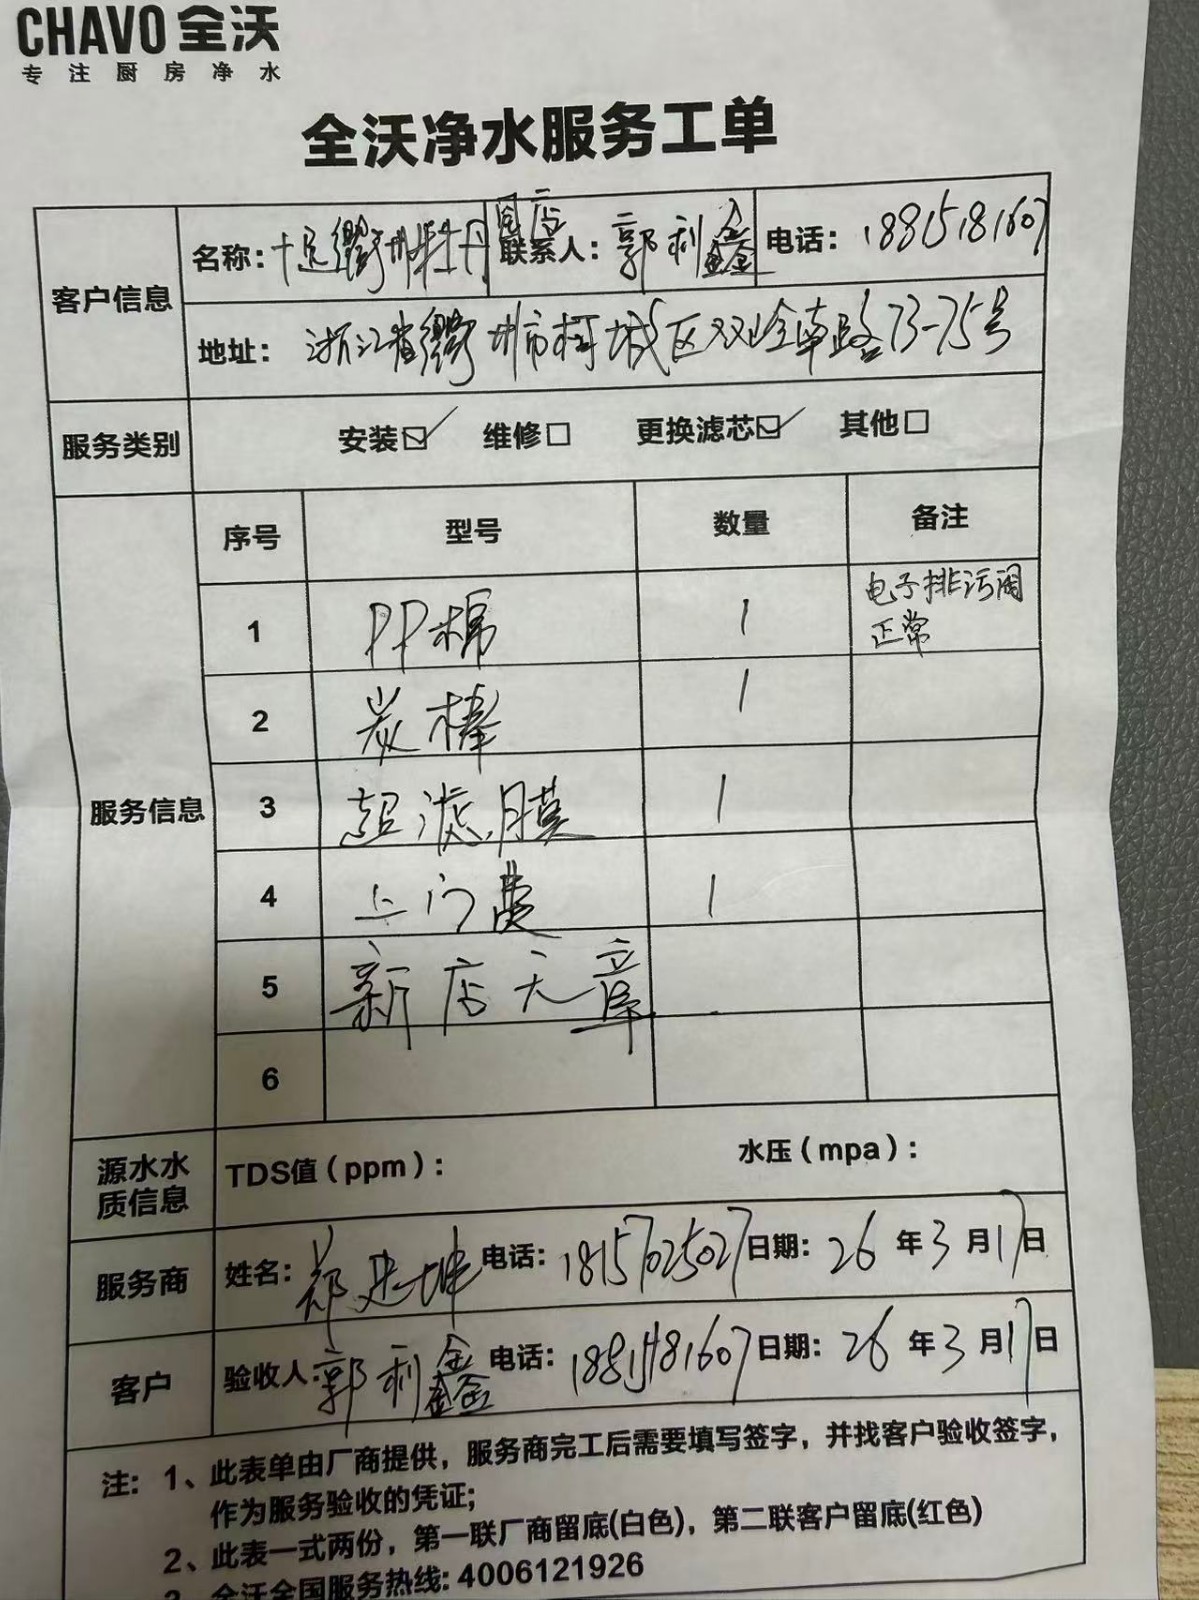 CHAVO 全沃
专注厨房净水
全沃净水服务工单
客户信息
名称：十足衢州牡丹园店 联系人：郭利鑫 电话：18815181607
地址：浙江省衢州市柯城区双岭南路73-75号
服务类别 安装☑ 维修□ 更换滤芯☑ 其他□
服务信息
序号 型号 数量 备注
1 PP棉 1 电子排污阀
正常
2 炭棒 1
3 超滤膜 1
4 上门费 1
5 新店无章
6
源水水
质信息
TDS值（ppm）： 水压（mpa）：
服务商 姓名：郑建坤 电话：18157025027 日期：26年3月17日
客户 验收人：郭利鑫 电话： 日期：26年3月17日
注：1、此表单由厂商提供，服务商完工后需要填写签字，并找客户验收签字，
作为服务验收的凭证；
2、此表一式两份，第一联厂商留底(白色)，第二联客户留底(红色)
3、全沃全国服务热线：4006121926